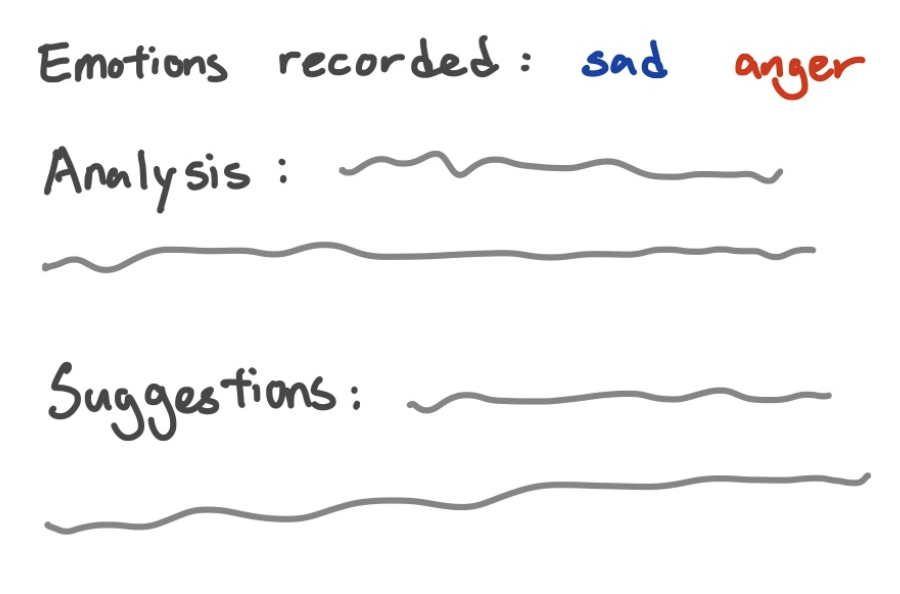 Emotions recorded: sad anger
Analysis:
Suggestions: